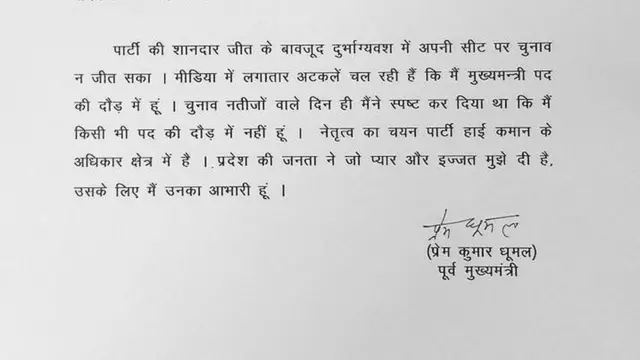 पार्टी की शानदार जीत के बावजूद दुर्भाग्यवश में अपनी सीट पर चुनाव
न जीत सका । मीडिया में लगातार अटकलें चल रही हैं कि मैं मुख्यमन्त्री पद
की दौड़ में हूं । चुनाव नतीजों वाले दिन ही मैंने स्पष्ट कर दिया था कि मैं
किसी भी पद की दौड़ में नहीं हूं । नेतृत्व का चयन पार्टी हाई कमान के
अधिकार क्षेत्र में है । प्रदेश की जनता ने जो प्यार और इज्जत मुझे दी है,
उसके लिए मैं उनका आभारी हूं ।
प्रेम धूमल
(प्रेम कुमार धूमल)
पूर्व मुख्यमंत्री